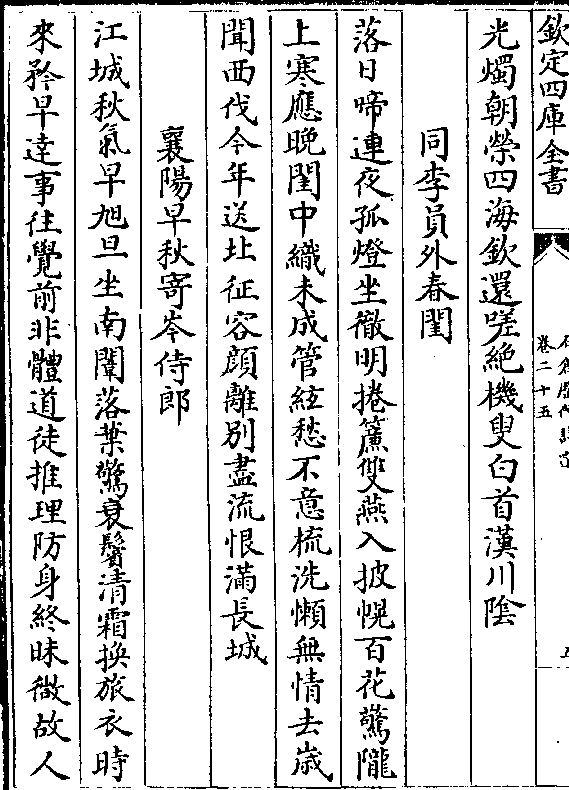 欽定四庫全書
卷二十五
光燭朝榮四海欽還嗟絶機叟白首漢川陰
同李員外春閨
落日啼連夜孤燈坐徹明捲簾雙燕入披幌百花驚隴
上寒應晚閨中織未成管絃愁不意梳洗懶無情去歲
聞西伐今年送北征容顔離別盡流恨滿長城
襄陽早秋寄岑侍郎
江城秋氣早旭旦坐南闈落葉驚衰鬢清霜換旅衣時
來矜早達事往覺前非體道徒推理防身終昧微故人